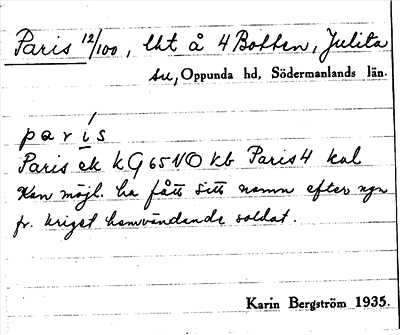 Paris 12/100, lht å 4 Botten, Julita
sn, Oppunda hd, Södermanlands län.
parís
Paris ek KG 65 VO kb Paris 4 kal
Kan möjl. ha fått sitt namn efter ngn
fr. kriget hemvändande soldat.
Karin Bergström 1935.